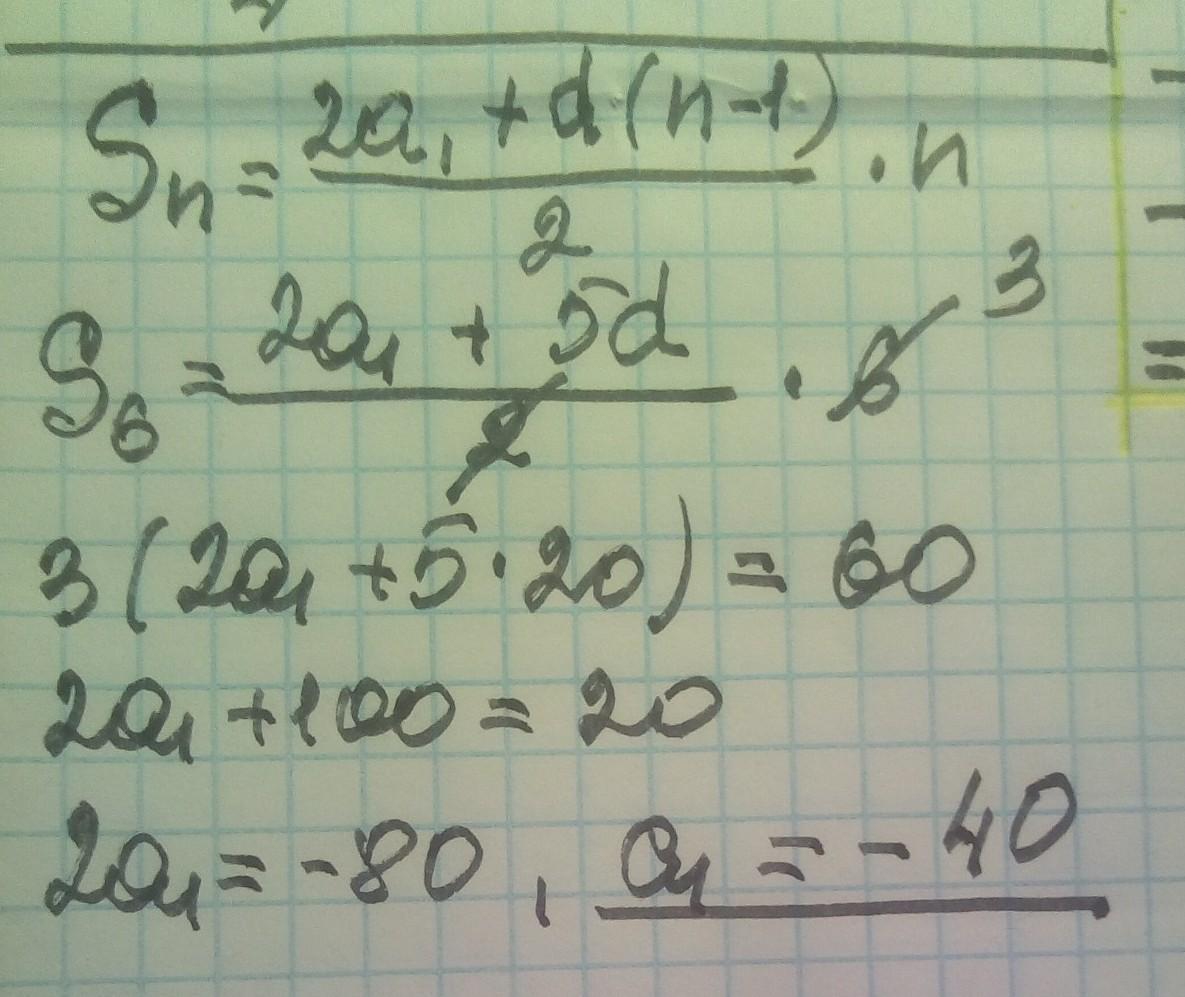 Sₙ = (2a₁ + d(n-1))/2 · n
S₆ = (2a₁ + 5d)/2 · 6 3
3(2a₁ + 5·20) = 60
2a₁ + 100 = 20
2a₁ = -80, a₁ = -40